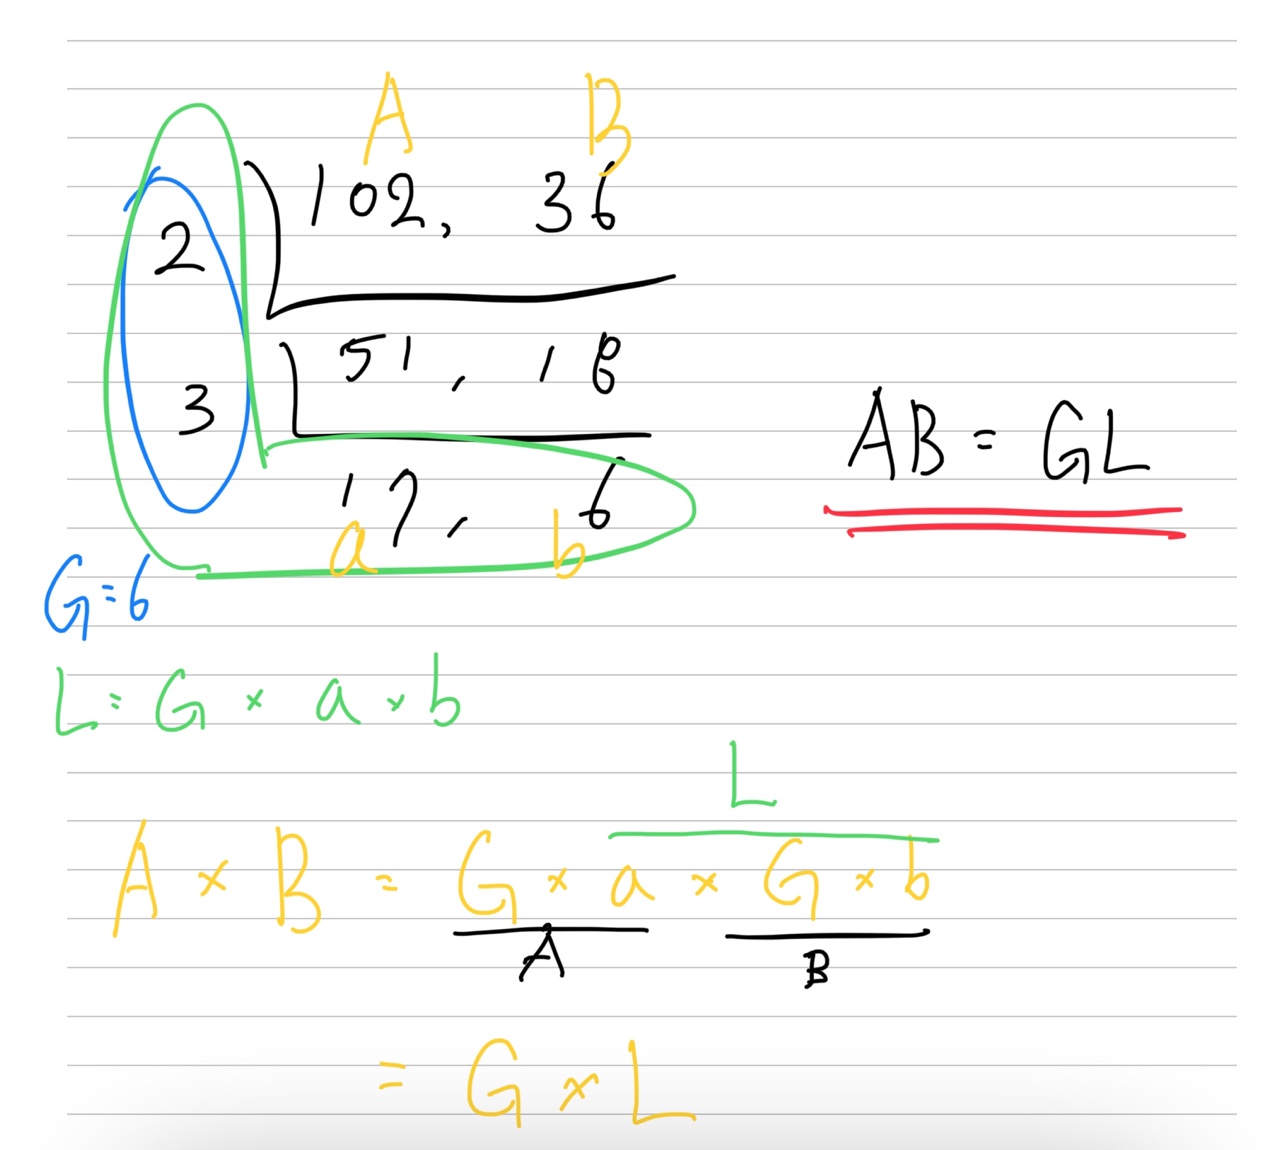 A B
2 102, 36
3 51, 18
17, 6
a b
AB = GL
G = 6
L = G × a × b
L
A × B = G × a × G × b
A B
= G × L